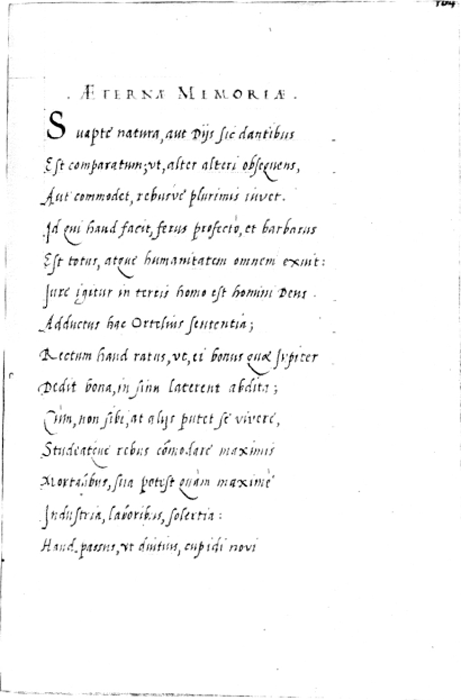 . ÆTERNÆ MEMORIÆ .
Suapte natura, aut Dijs sic dantibus
Est comparatum; vt, alter alteri obsequens,
Aut commodet, rebusve plurimis iuvet.
Id qui haud facit, ferus profectò, et barbarus
Est totus, atque humanitatem omnem exuit:
Jure igitur in terris homo est homini Deus.
Adductus hac Ortelius sententia;
Rectum haud ratus, vt, ei bonus quæ Jupiter
Dedit bona, in sinu laterent abdita;
Cùm, non sibi, at alijs putet se vivere,
Studeatque rebus cõmodare maximis
Mortalibus, sua potest quàm maximè
Industria, laboribus, solertia:
Haud passus, vt diutius, cupidi novi